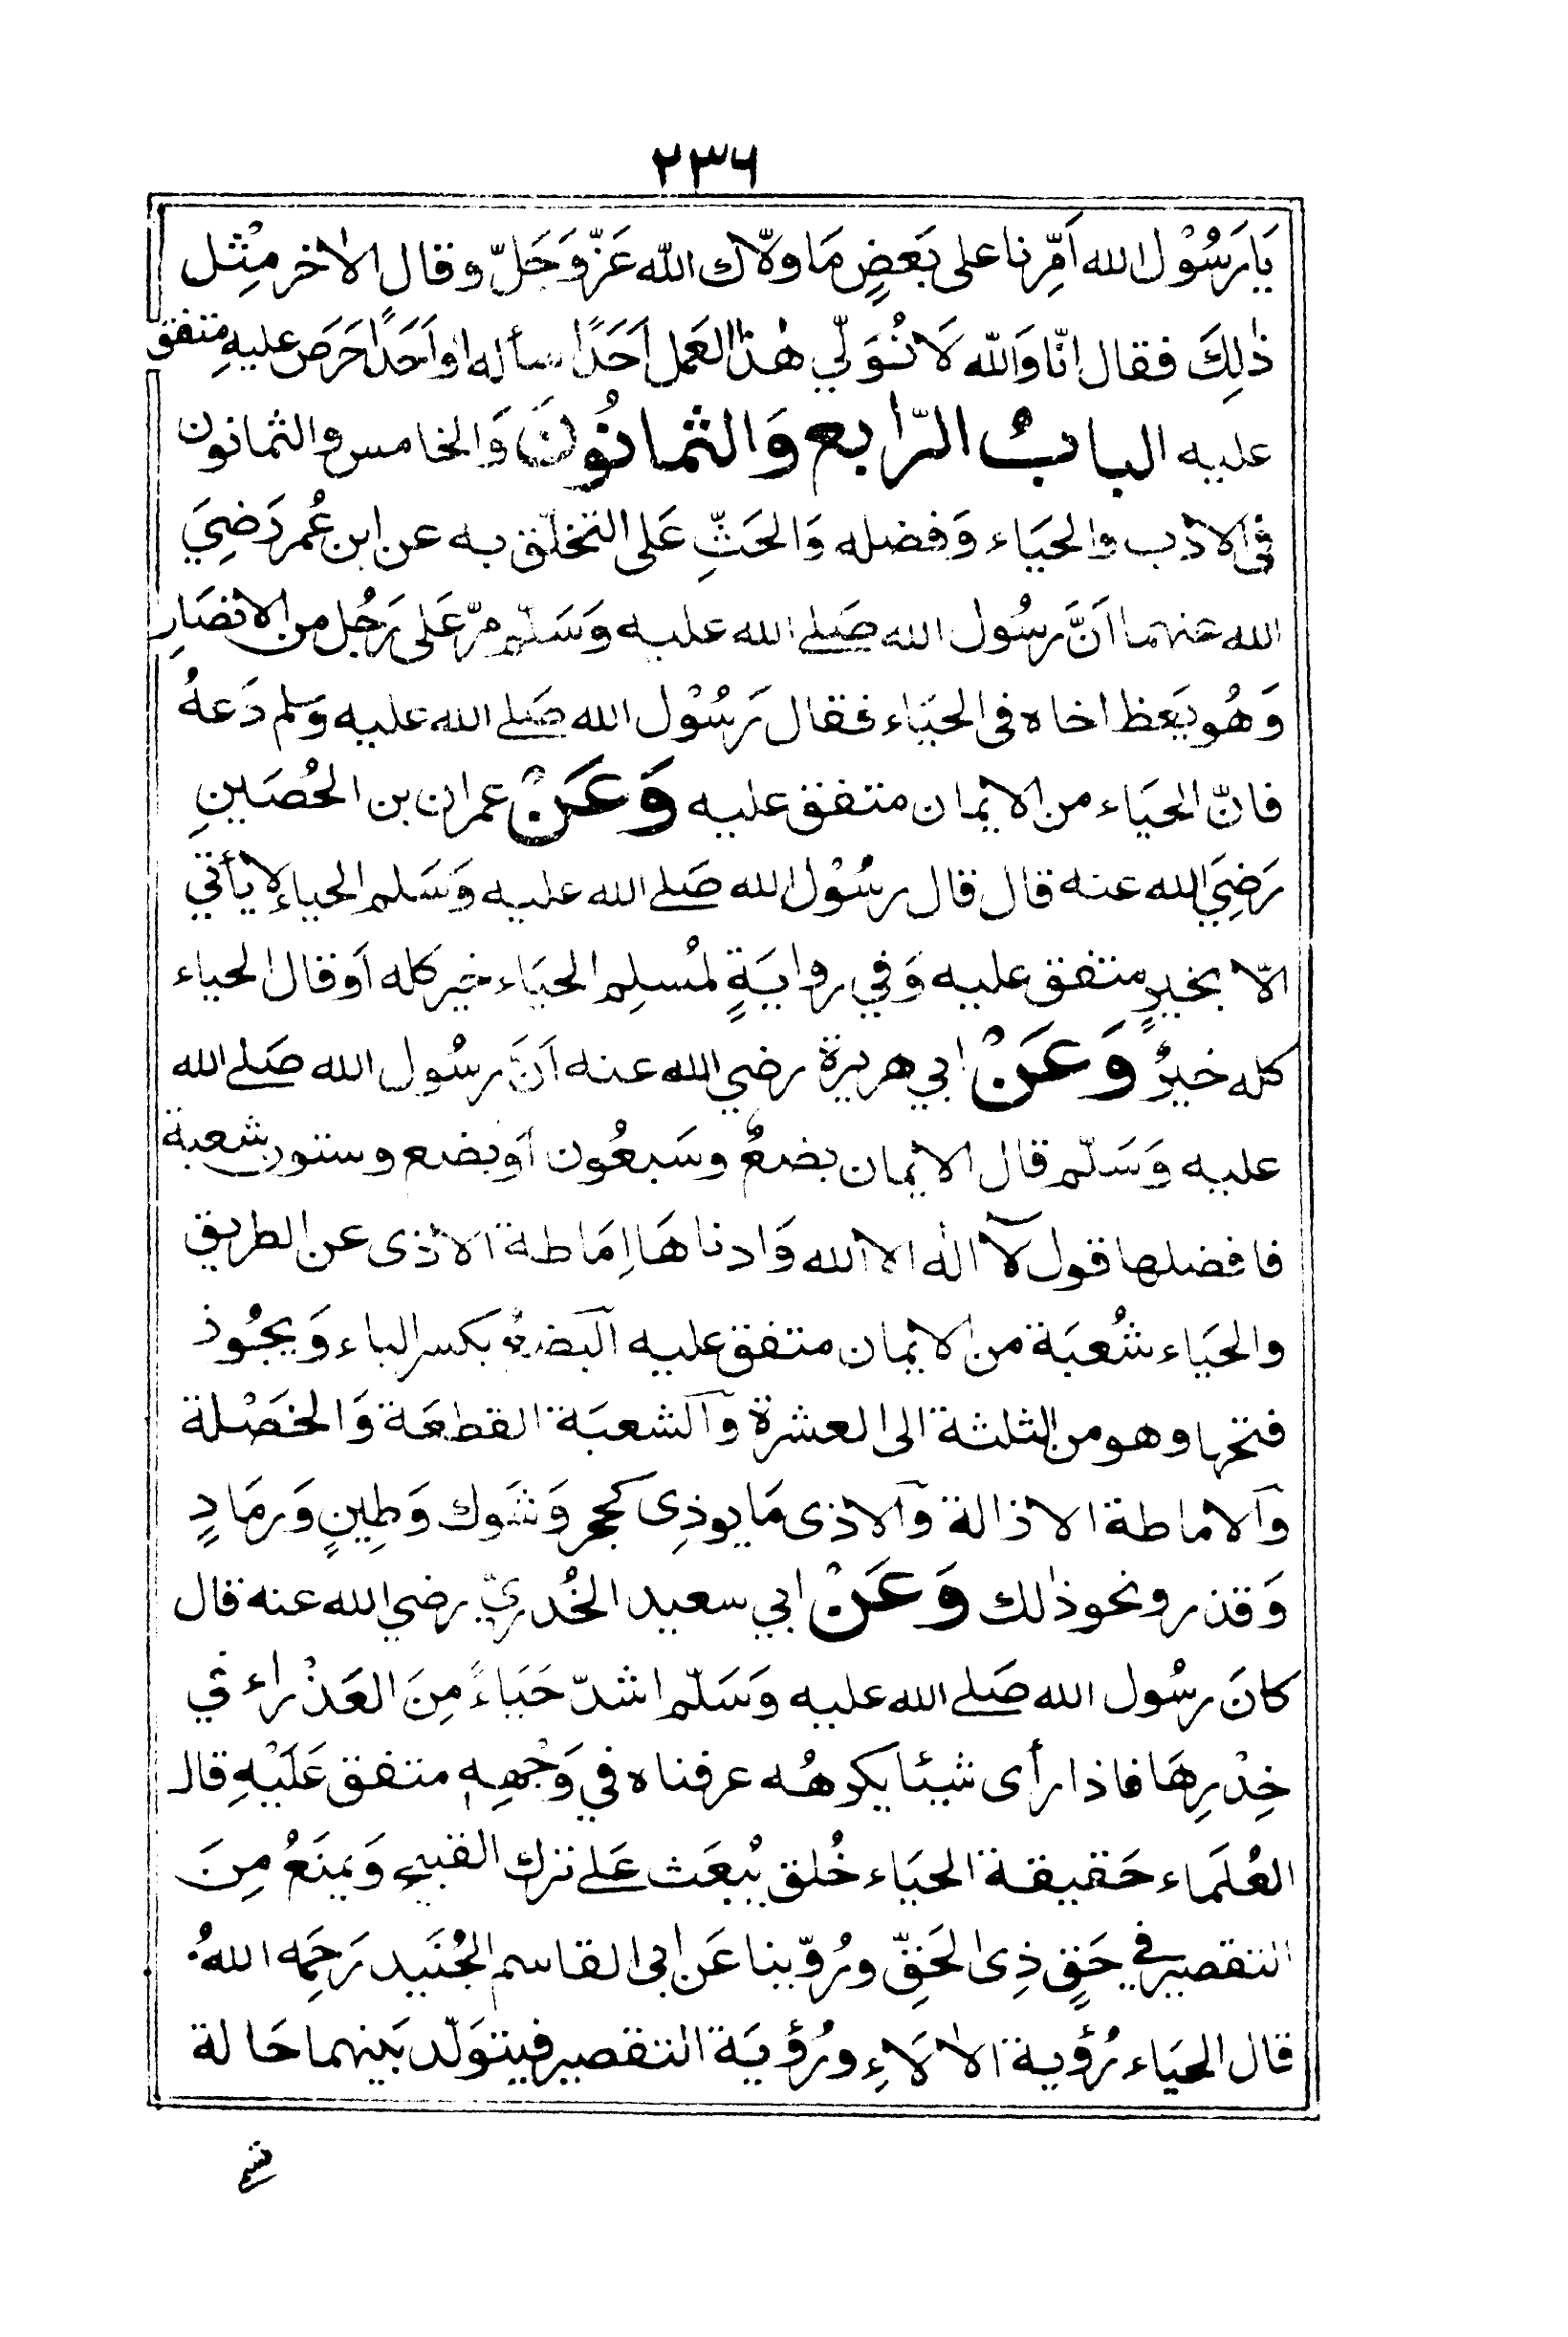 ٢٣٦
يَارَسُوْل الله اَمِّرنا على بَعَضٍ مَا وَلّاك اللّه عَزّوَجَلّ وقال الاٰخر مِثْل
ذٰلِكَ فقال انّا وَاللّه لَا نُوَلّي هٰذا العَمل اَحَدًا سأله او اَحَدًا حَرَصَ عليهِ متفق
عليه البابُ الرّابع وَالثمانُونَ وَالخامس والثمانون
فى الاذب والحيَاء وَفضله وَالحَثِّ عَلى التخلّق به عن ابن عُمر رَضِيَ
الله عنهما اَنَّ رسُول الله صَلے الله عليه وَسَلّم مرّ عَلى رَجُل من الانصَارِ
وَهُو يَعَظ اخاه فى الحيَاء فقال رَسُوْل الله صَلے الله عليه وَسلم دَعهُ
فانّ الحيَاء من الايمان متفق عليه وَعَنْ عمران بن الحُصَينِ
رَضِيَ الله عنه قال قال رسُوْل الله صَلے الله عليه وَسَلم الحياء لا يأتي
الّا بخيرٍ متفق عليه وَفي روايَةٍ لمُسلِم الحيَاء خير كله اَو قال الحياء
كله خيرٌ وَعَنْ ابي هريرة رضي الله عنه اَنَّ رسُول الله صَلے الله
عليه وَسَلّم قال الايمان بضعٌ وسَبعُون اَو بضع وستون شعبة
فافضلها قول لآ الٰه الا الله وَادناهَا اِمَاطة الاذى عن الطريق
والحيَاء شُعبَة من الايمان متفق عليه اَلبضعُ بكسر الباء وَيجُوذ
فتحها وهو من الثلثة الى العشرة وَالشعبَة القطعَة وَالخصْلة
وَالاماطة الاذالة وَالاذى مَا يوذِى كحجر وَشَوك وَطِينٍ وَرمَادٍ
وَقذر ونحو ذٰلك وَعَنْ ابي سعيد الخُدريّ رضي الله عنه قال
كانَ رسُول الله صَلے الله عليه وَسَلّم اشدّ حَيَاءً مِنَ العَذْراء في
خِدْرِهَا فاذا رأى شيئا يكرهُه عرفناه في وَجْهِهٖ متفق عَلَيْهِ قال
العُلَماء حَقيقة الحيَاء خُلق يُبعَث عَلے ترك القبيح وَيمنَعُ مِنَ
التقصير في حَقٍ ذِى الحَقِّ ورُوّينا عَن ابى القاسم الجُنَيد رَحِمَه اللهُ
قال الحيَاء رُؤية الاٰلَاءِ ورُؤيَة التقصير فيتوَلّد بَينهما حَالة